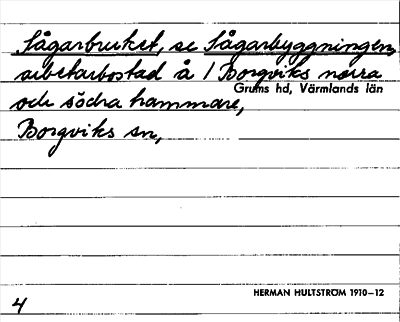 Sågarbruket, se Sågarbyggningen,
arbetarbostad å / Borgviks norra
Grums hd, Värmlands län
och södra hammare,
Borgviks sn,
HERMAN HULTSTRÖM 1910–12
4